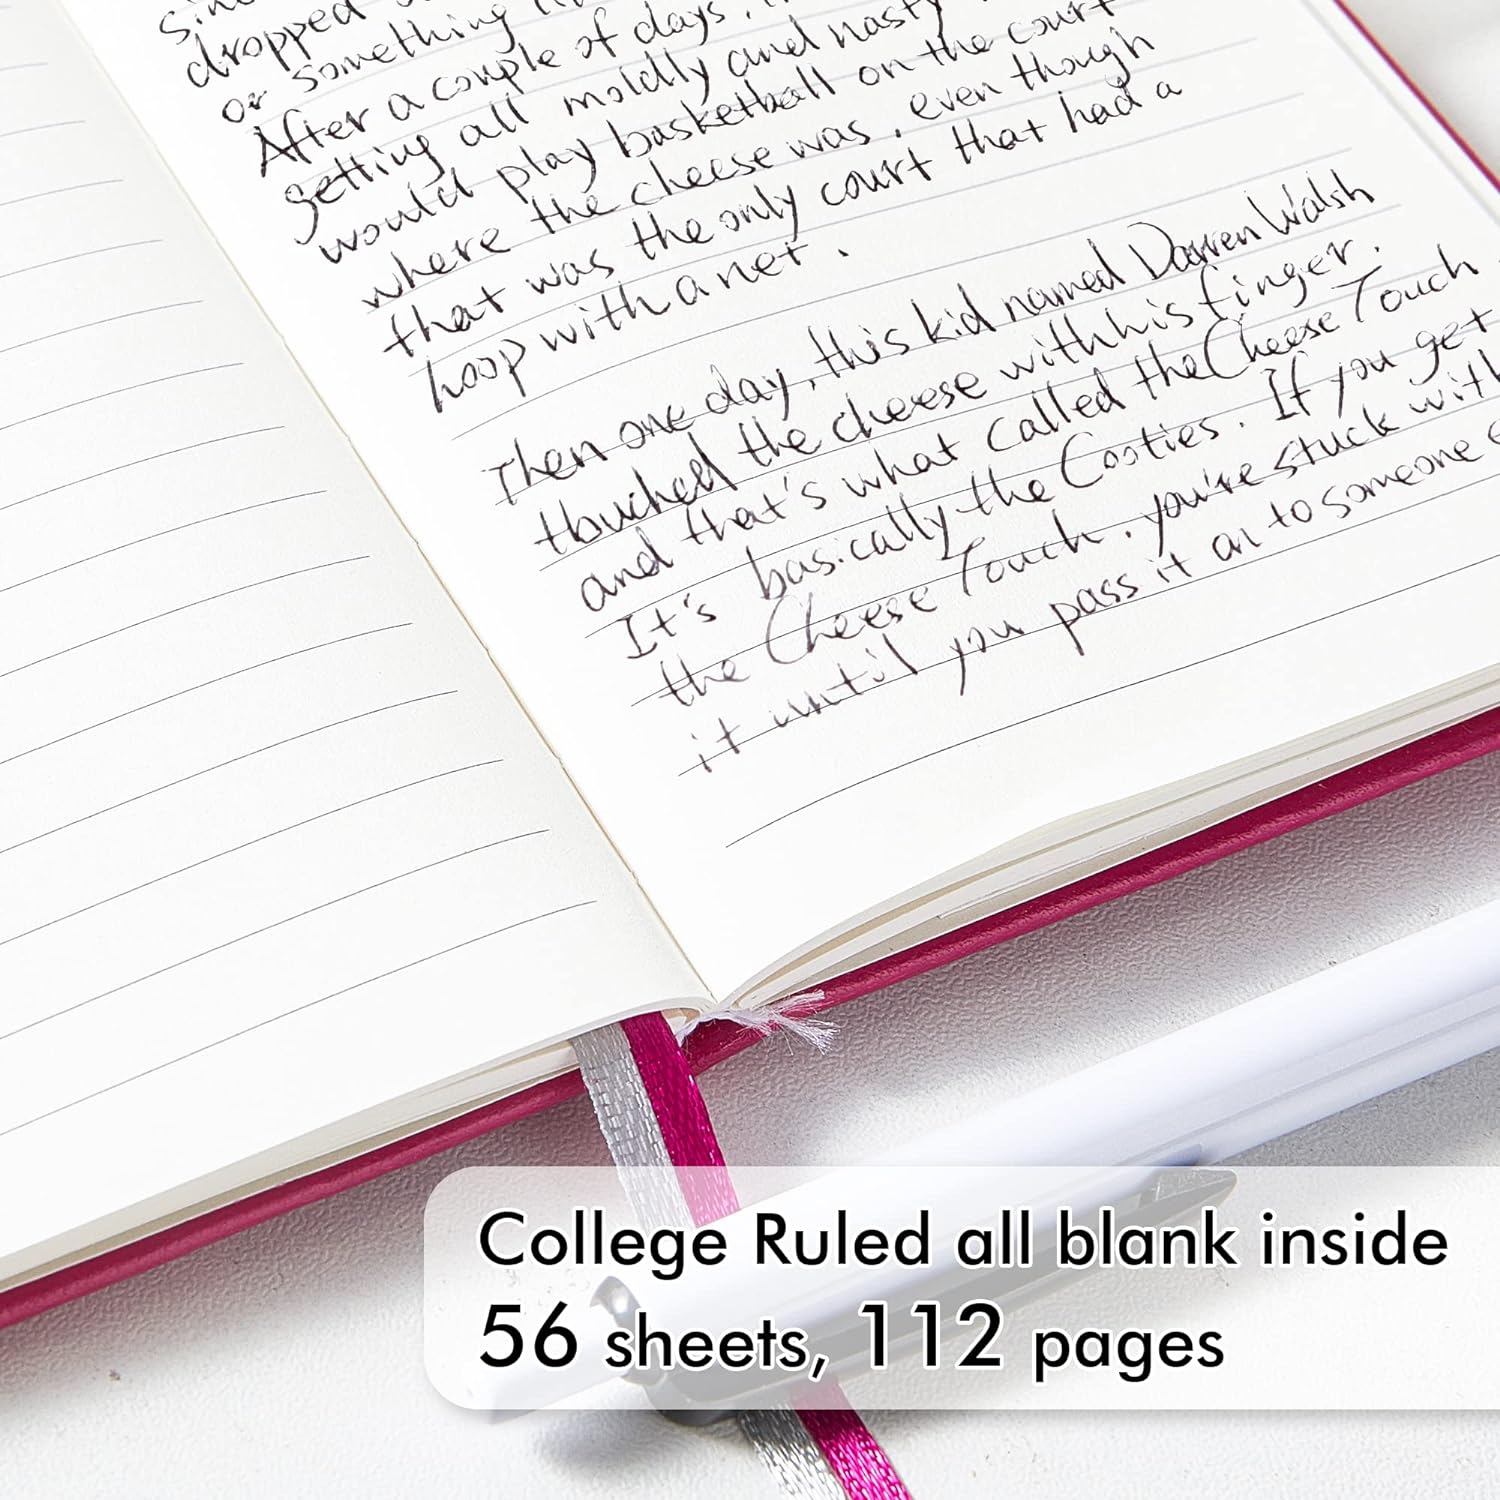 dropped
or something
After a couple of days,
getting all moldly and nasty
would play basketball on the court
where the cheese was, even though
that was the only court that had a
hoop with a net.
Then one day, this kid named Darren Walsh
touched the cheese with his finger.
and that's what called the Cheese Touch
It's basically the Cooties. If you get
the Cheese Touch, you're stuck with
it until you pass it on to someone
College Ruled all blank inside
56 sheets, 112 pages